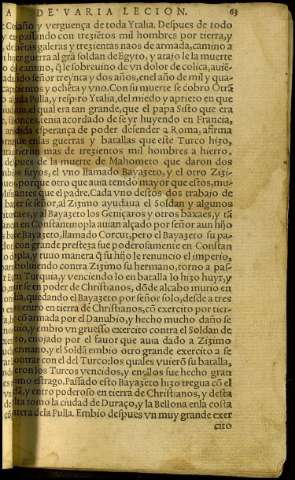 DE VARIA LECION. 63
daño y verguença de toda Ytalia. Despues de todo
passando con trezietos mil hombres por tierra, y
dozietas galeras y trezientas naos de armada, camino a
hazer guerra al grã soldan de Egyto, y atajo le la muerte
de camino, q̃ le sobreuino de vn dolor de colica, auiẽ
do sido señor treynta y dos años, en el año de mil y qua
y ochẽta y vno. Con su muerte se cobro Otrã
Pulla, y respiro Ytalia, del miedo y aprieto en que
el qual era tan grande, que el papa Sisto que era
tenia acordado de se yr huyendo en Francia,
perdida esperança de poder defender a Roma, afirma
que en las guerras y batallas que este Turco hizo,
murieron mas de trezientos mil hombres a hierro.
Despues de la muerte de Mahometo que daron dos
suyos, el vno llamado Bayazeto, y el otro Zizi-
porque otro que auia tenido mayor que estos, mu
antes que el padre. Cada vno destos dos trabajo de
ser señor, al Zizimo ayudaua el Soldan y algunos
y al Bayazeto los Geniçaros y otros baxaes, y tã
en Constantinopla auian alçado por señor aun hijo
Bayazeto, llamado Corcut, pero el Bayazeto su pa
con grande presteza fue poderosamente en Constan
y tuuo manera q̃ su hijo le renuncio el imperio,
boluiendo contra Zizimo su hermano, torno a pas-
en Turquia, y venciendo lo en batalla lo hizo huyr, y
en poder de Christianos, dõde alcabo murio en
quedando el Bayazeto por señor solo, desde a tres
entro en tierra de Christianos, cõ exercito por tier-
cõ armada por el Danubio, y hecho mucho daño se
y embio vn gruesso exercito contra el Soldan de
enojado por el fauor que auia dado a Zizimo
hermano, y el Soldã embio otro grande exercito a se
contrar con el del Turco: los quales vuierõ su batalla,
fueron los Turcos vencidos, y en ellos fue hecho gran
estrago. Passado esto Bayazeto hizo tregua cõ el
y entro poderoso en tierra de Christianos, y desta
tomo la ciudad de Duraço, y la Bellona en la costa
frõtera dela Pulla. Embio despues vn muy grande exer
cito